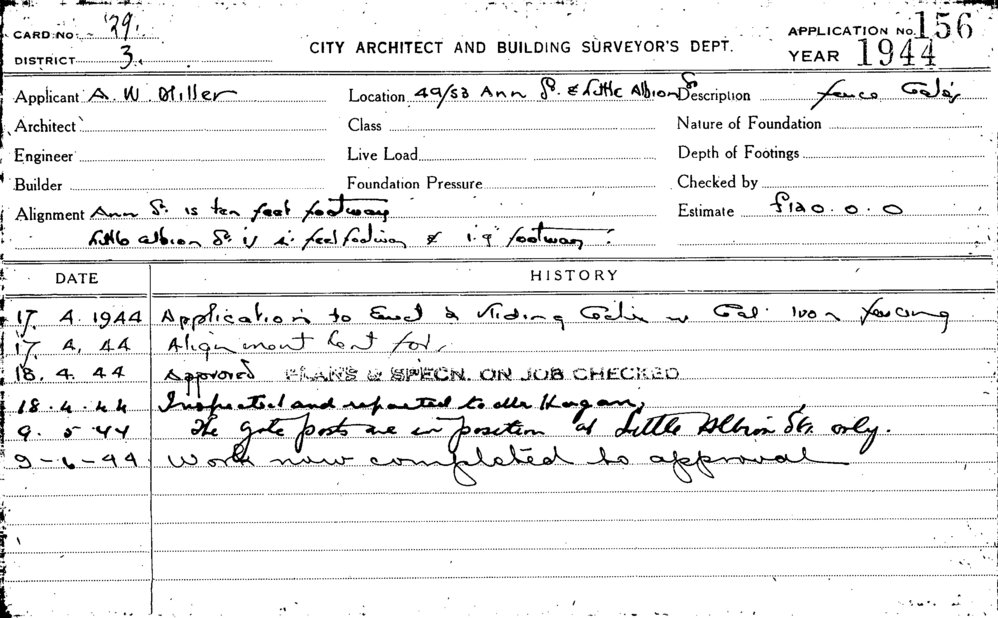 CARD No. '29.
DISTRICT 3.
CITY ARCHITECT AND BUILDING SURVEYOR'S DEPT.
APPLICATION No. 156
YEAR 1944
Applicant A. W. Miller
Location 49/53 Ann St. & Little Albion St
Description fence Gates
Architect
Class
Nature of Foundation
Engineer
Live Load
Depth of Footings
Builder
Foundation Pressure
Checked by
Alignment Ann St. is ten feet footway
Estimate £120.0.0
Little Albion St. is feet & 1.9" footway.
DATE HISTORY
17. 4. 1944 Application to Erect 2 Sliding Gates Gal. Iron fencing
17. 4. 44 Alignment sent for.
18. 4. 44 Approved PLANS & SPECN. ON JOB CHECKED
18. 4. 44 Inspected and reported to Mr Hogan,
9. 5. 44 The gate posts are in position at Little Albion St. only.
9-6-44 Work now completed to approval